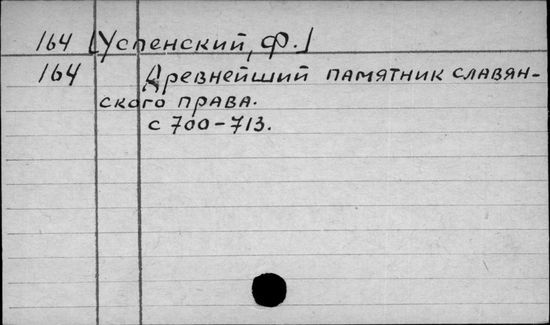 164 [Успенский, Ф.]
164 Древнейший памятник славян-
ского права.
с 700-713.